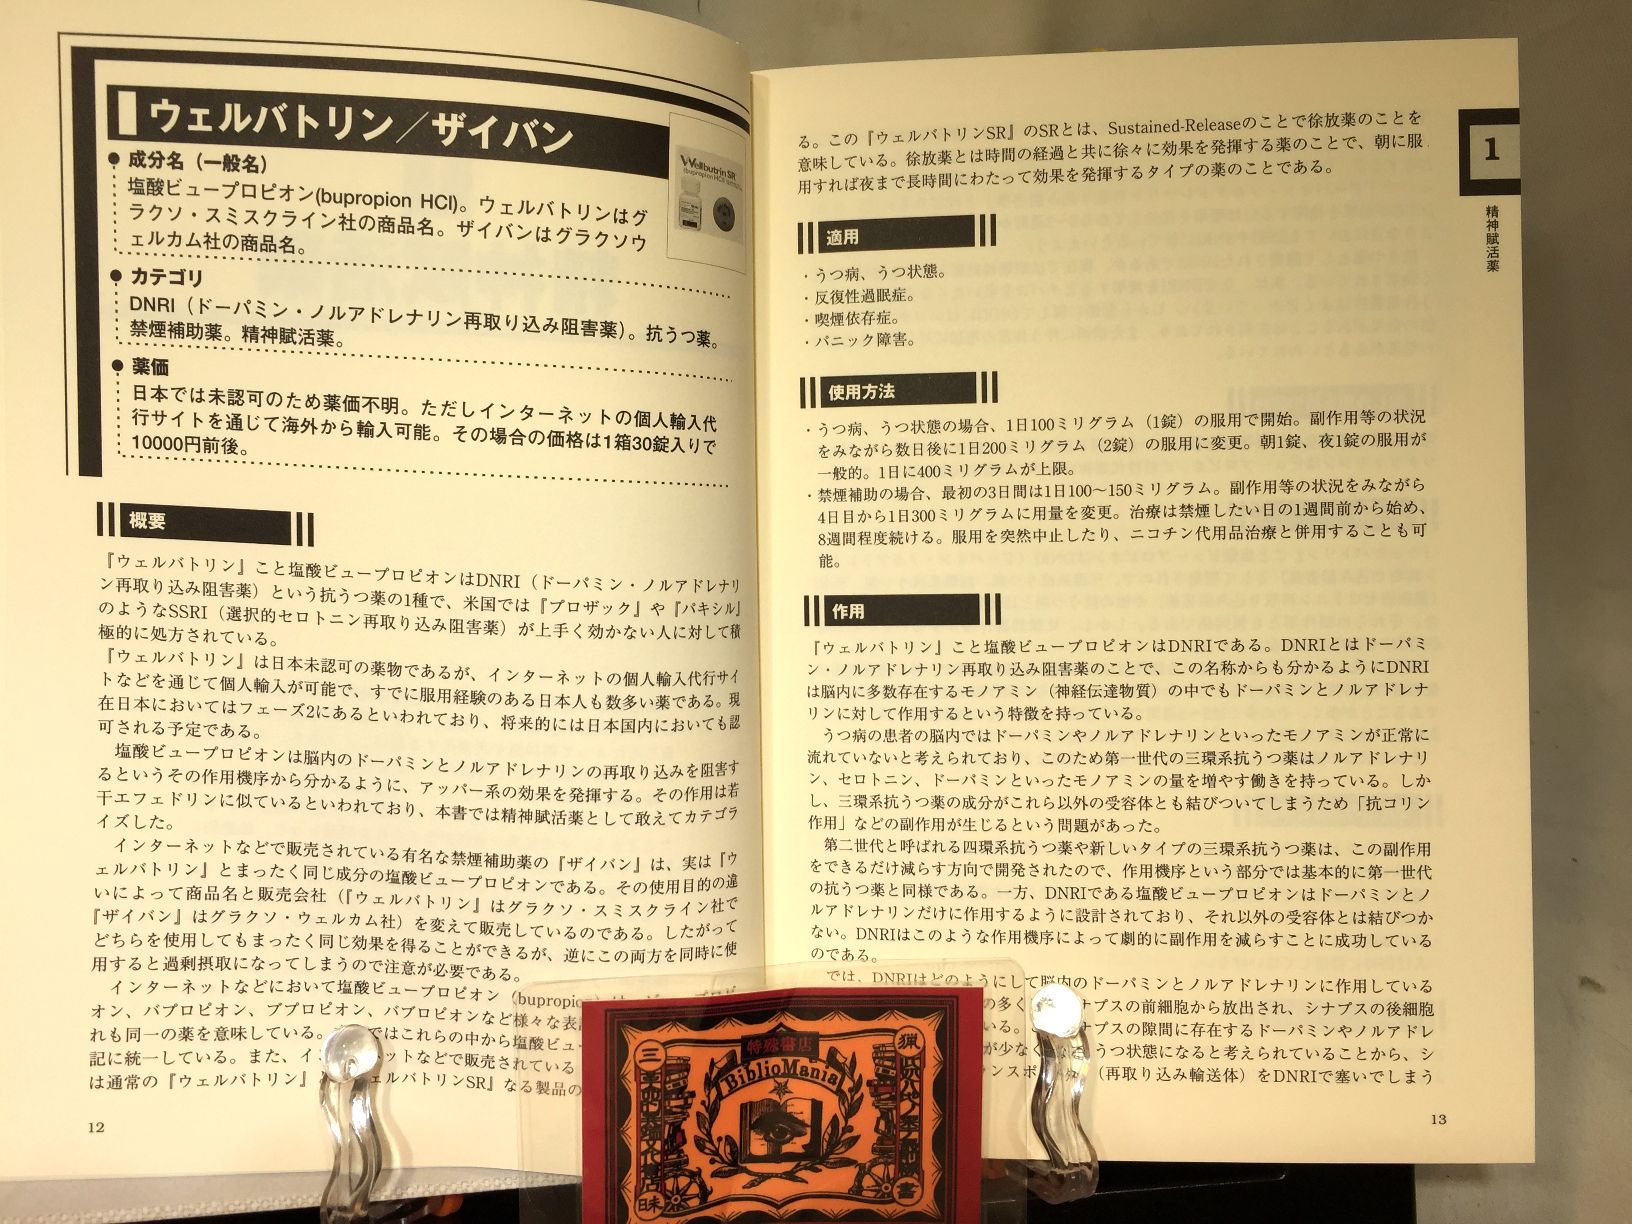 ウェルバトリン／ザイバン
● 成分名（一般名）
塩酸ビュープロピオン(bupropion HCl)。ウェルバトリンはグ
ラクソ・スミスクライン社の商品名。ザイバンはグラクソウ
ェルカム社の商品名。
Wellbutrin SR
(bupropion HCl)
● カテゴリ
DNRI（ドーパミン・ノルアドレナリン再取り込み阻害薬）。抗うつ薬。
禁煙補助薬。精神賦活薬。
● 薬価
日本では未認可のため薬価不明。ただしインターネットの個人輸入代
行サイトを通じて海外から輸入可能。その場合の価格は1箱30錠入りで
10000円前後。
概要
『ウェルバトリン』こと塩酸ビュープロピオンはDNRI（ドーパミン・ノルアドレナリ
ン再取り込み阻害薬）という抗うつ薬の1種で、米国では『プロザック』や『パキシル』
のようなSSRI（選択的セロトニン再取り込み阻害薬）が上手く効かない人に対して積
極的に処方されている。
『ウェルバトリン』は日本未認可の薬物であるが、インターネットの個人輸入代行サイ
トなどを通じて個人輸入が可能で、すでに服用経験のある日本人も数多い薬である。現
在日本においてはフェーズ2にあるといわれており、将来的には日本国内においても認
可される予定である。
塩酸ビュープロピオンは脳内のドーパミンとノルアドレナリンの再取り込みを阻害す
るというその作用機序から分かるように、アッパー系の効果を発揮する。その作用は若
干エフェドリンに似ているといわれており、本書では精神賦活薬として敢えてカテゴラ
イズした。
インターネットなどで販売されている有名な禁煙補助薬の『ザイバン』は、実は『ウ
ェルバトリン』とまったく同じ成分の塩酸ビュープロピオンである。その使用目的の違
いによって商品名と販売会社（『ウェルバトリン』はグラクソ・スミスクライン社で
『ザイバン』はグラクソ・ウェルカム社）を変えて販売しているのである。したがって
どちらを使用してもまったく同じ効果を得ることができるが、逆にこの両方を同時に使
用すると過剰摂取になってしまうので注意が必要である。
インターネットなどにおいて塩酸ビュープロピオン（bupropion）は
オン、バプロピオン、ブプロピオン、バブロピオンなど様々な表
れも同一の薬を意味している。ではこれらの中から塩酸ビュー
記に統一している。また、イ ネットなどで販売されている
は通常の『ウェルバトリン』 ェルバトリンSR』なる製品の
12
る。この『ウェルバトリンSR』のSRとは、Sustained-Releaseのことで徐放薬のことを
意味している。徐放薬とは時間の経過と共に徐々に効果を発揮する薬のことで、朝に服
用すれば夜まで長時間にわたって効果を発揮するタイプの薬のことである。
1
精神賦活薬
適用
・うつ病、うつ状態。
・反復性過眠症。
・喫煙依存症。
・パニック障害。
使用方法
・うつ病、うつ状態の場合、1日100ミリグラム（1錠）の服用で開始。副作用等の状況
をみながら数日後に1日200ミリグラム（2錠）の服用に変更。朝1錠、夜1錠の服用が
一般的。1日に400ミリグラムが上限。
・禁煙補助の場合、最初の3日間は1日100～150ミリグラム。副作用等の状況をみながら
4日目から1日300ミリグラムに用量を変更。治療は禁煙したい日の1週間前から始め、
8週間程度続ける。服用を突然中止したり、ニコチン代用品治療と併用することも可
能。
作用
『ウェルバトリン』こと塩酸ビュープロピオンはDNRIである。DNRIとはドーパミ
ン・ノルアドレナリン再取り込み阻害薬のことで、この名称からも分かるようにDNRI
は脳内に多数存在するモノアミン（神経伝達物質）の中でもドーパミンとノルアドレナ
リンに対して作用するという特徴を持っている。
うつ病の患者の脳内ではドーパミンやノルアドレナリンといったモノアミンが正常に
流れていないと考えられており、このため第一世代の三環系抗うつ薬はノルアドレナリ
ン、セロトニン、ドーパミンといったモノアミンの量を増やす働きを持っている。しか
し、三環系抗うつ薬の成分がこれら以外の受容体とも結びついてしまうため「抗コリン
作用」などの副作用が生じるという問題があった。
第二世代と呼ばれる四環系抗うつ薬や新しいタイプの三環系抗うつ薬は、この副作用
をできるだけ減らす方向で開発されたので、作用機序という部分では基本的に第一世代
の抗うつ薬と同様である。一方、DNRIである塩酸ビュープロピオンはドーパミンとノ
ルアドレナリンだけに作用するように設計されており、それ以外の受容体とは結びつか
ない。DNRIはこのような作用機序によって劇的に副作用を減らすことに成功している
のである。
では、DNRIはどのようにして脳内のドーパミンとノルアドレナリンに作用している
の多く ナプスの前細胞から放出され、シナプスの後細胞
いる。 ナプスの隙間に存在するドーパミンやノルアドレ
が少な うつ状態になると考えられていることから、シ
ンスポ （再取り込み輸送体）をDNRIで塞いでしまう
13
特殊書店
BiblioMania